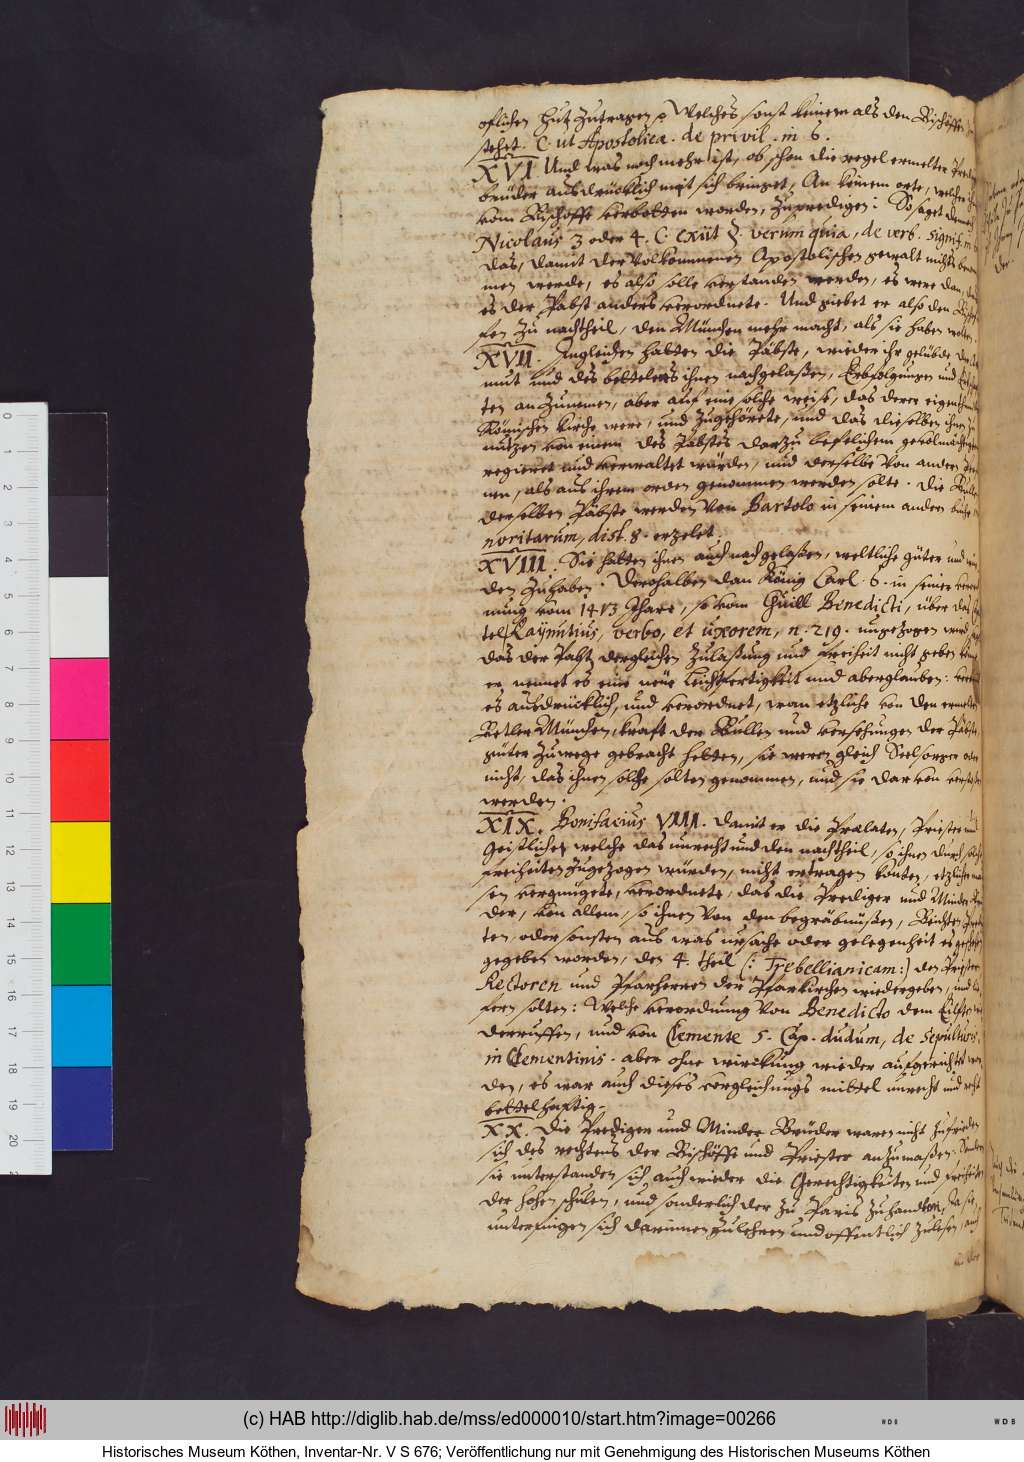 oflichen Hut zutragen, Welches sonst keinem als den Bischöffen
stehet. C. ut Apostolica. de privil. in 6.
XVI Und was noch mehr ist, ob schon die regel ermelter
brüder ausdrücklich mit sich bringet, An keinem orte, welchen
vom Bischoffe verbotten worden, zupredigen: So saget
Nicolaus 3 oder 4. C. exiit §. verum quia, de verb. signif. in
das, damit der Volkommenen Apostolischen gewalt nichts
men werde, es also solle verstanden werden, es were dan,
es der Pabst anders verordnete. Und giebet er also den
fen zu nachtheil, den München mehr macht, als sie haben wolten.
XVII. Ingleichen habten die Päbste, wieder ihr gelübde der
mut und des bettelens ihnen nachgelaßen, Erbfolgungen und
ten anzunemen, aber auf eine solche weise, das deren eigenthum
Römischen Kirche were, und zugehörete, und das dieselben ihnen zu
nutzen, von einem des Pabstes darzu befelichem gevolmächtigten
regieret und verwaltet würden, und derselbe von andern
nen, als aus ihrem orden genommen werden solte. Die
derselben Päbste werden von Bartolo in seinem andern buche
noritarum, dist. 8. erzelet.
XVIII. Sie habten ihnen auch nachgelaßen, weltliche güter und
den zuhaben. Derohalben dan König Carl. 6. in seiner
nung vom 1413 Jhare, so vom Guill Benedicti, über das
tel, Raÿnutius, verbo, et uxorem, n. 219. angezogen wird
das der Pabst dergleichen Zulaßung und freiheit nicht geben
er nennet es eine neüe leichtfertigkeit und aberglauben:
es ausdrücklich, und verordnet, wan etzliche von den ermelten
Betler München, kraft der Bullen und versehungen der Päbste,
güter zuwege gebracht hetten, sie weren gleich Seelsorger oder
nicht, das ihnen solche solten genommen, und sie darvon
werden.
XIX. Bonifacius VIII. damit er die Praelaten, Priester und
Geistliche, welche das unrecht und den nachtheil, so ihnen durch
freiheiten zugezogen würden, nicht ertragen konten, etzlicher
sen vergnügete, verordnete, das die Prediger und Minder
der, von allem, so ihnen von den begräbnüßen, Beichten,
ten, oder sonsten aus was ursache oder gelegenheit es
gegeben worden, den 4. theil (: Trebellianicam:) den Priestern
Rectoren und Pfarherren der Pfarkirchen wiedergeben, und
fern solten: Welche verordnung von Benedicto dem Eilften
derruffen, und von Clemente 5. Cap. dudum, de sepulturis,
in Clementinis. aber ohne wirckung wieder aufgerichtet
den, es war auch dieses vergleichungs mittel unrecht und
bettelhaftig.
XX. Die Prediger und Minder Brüder waren nicht zufrieden
sich des rechtens der Bischöffe und Priester anzumaßen:
sie unterstanden sich auch wieder die Gerechtigkeiten und freiheiten
der hohen schulen, und sonderlich der zu Paris zuhandlen,
unterfingen sich darinnen zulehren und offentlich zulesen,
0
1
2
3
4
5
6
7
8
9
10
11
12
13
14
15
16
17
18
19
20
(c) HAB http://diglib.hab.de/mss/ed000010/start.htm?image=00266
WDB
WDB
Historisches Museum Köthen, Inventar-Nr. V S 676; Veröffentlichung nur mit Genehmigung des Historischen Museums Köthen